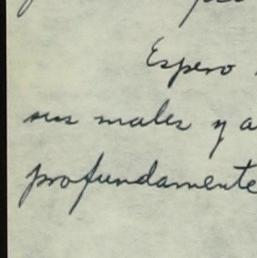 Espero
sus males y a
profundamente